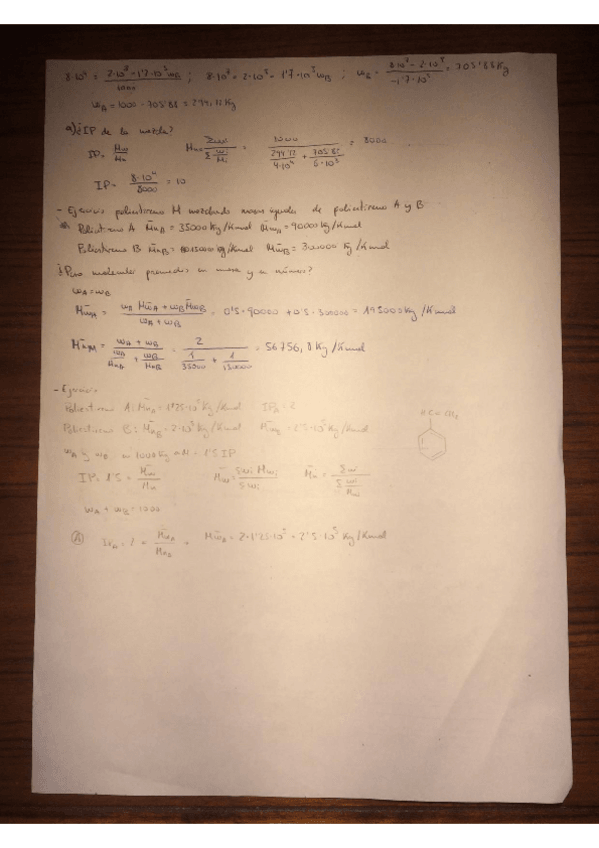 8·10⁴ = (2·10⁸ - 1'7·10⁵ wB) / 1000 ; 8·10⁷ = 2·10⁸ - 1'7·10⁵ wB ; wB = (8·10⁷ - 2·10⁸) / (-1'7·10⁵) = 705'88 Kg
wA = 1000 - 705'88 = 294'12 Kg
a) ¿IP de la mezcla?
IP = Mw / Mn    Mn = Σw / Σ(w/Mi) = 1000 / (294'12 / 4·10⁴ + 705'88 / 6·10³) = 8000
IP = 8·10⁴ / 8000 = 10
- Ejercicio poliestireno M mezclando masas iguales de poliestireno A y B
Poliestireno A M̄nA = 35000 Kg/Kmol M̄wA = 90000 Kg/Kmol
Poliestireno B M̄nB = 150000 Kg/Kmol M̄wB = 300000 Kg/Kmol
¿Peso molecular promedio en masa y en número?
wA = wB
= (wA M̄wA + wB M̄wB) / (wA + wB) = 0'5·90000 + 0'5·300000 = 195000 Kg/Kmol
M̄nM = (wA + wB) / (wA/M̄nA + wB/M̄nB) = 2 / (1/35000 + 1/150000) = 56756,8 Kg/Kmol
- Ejercicio
Poliestireno A: M̄nA = 1'25·10⁵ Kg/Kmol IPA = 2
Poliestireno B: M̄nB = 2·10⁵ Kg/Kmol = 2'5·10⁵ Kg/Kmol
wA y wB en 1000 Kg 1'5 IP
IP = 1'5 = M̄w / M̄n    M̄w = Σwi Mwi / Σwi    M̄n = Σw / Σ(w/Mni)
wA + wB = 1000
Ⓐ IPA = 2 = M̄wA / M̄nA → = 2·1'25·10⁵ = 2'5·10⁵ Kg/Kmol